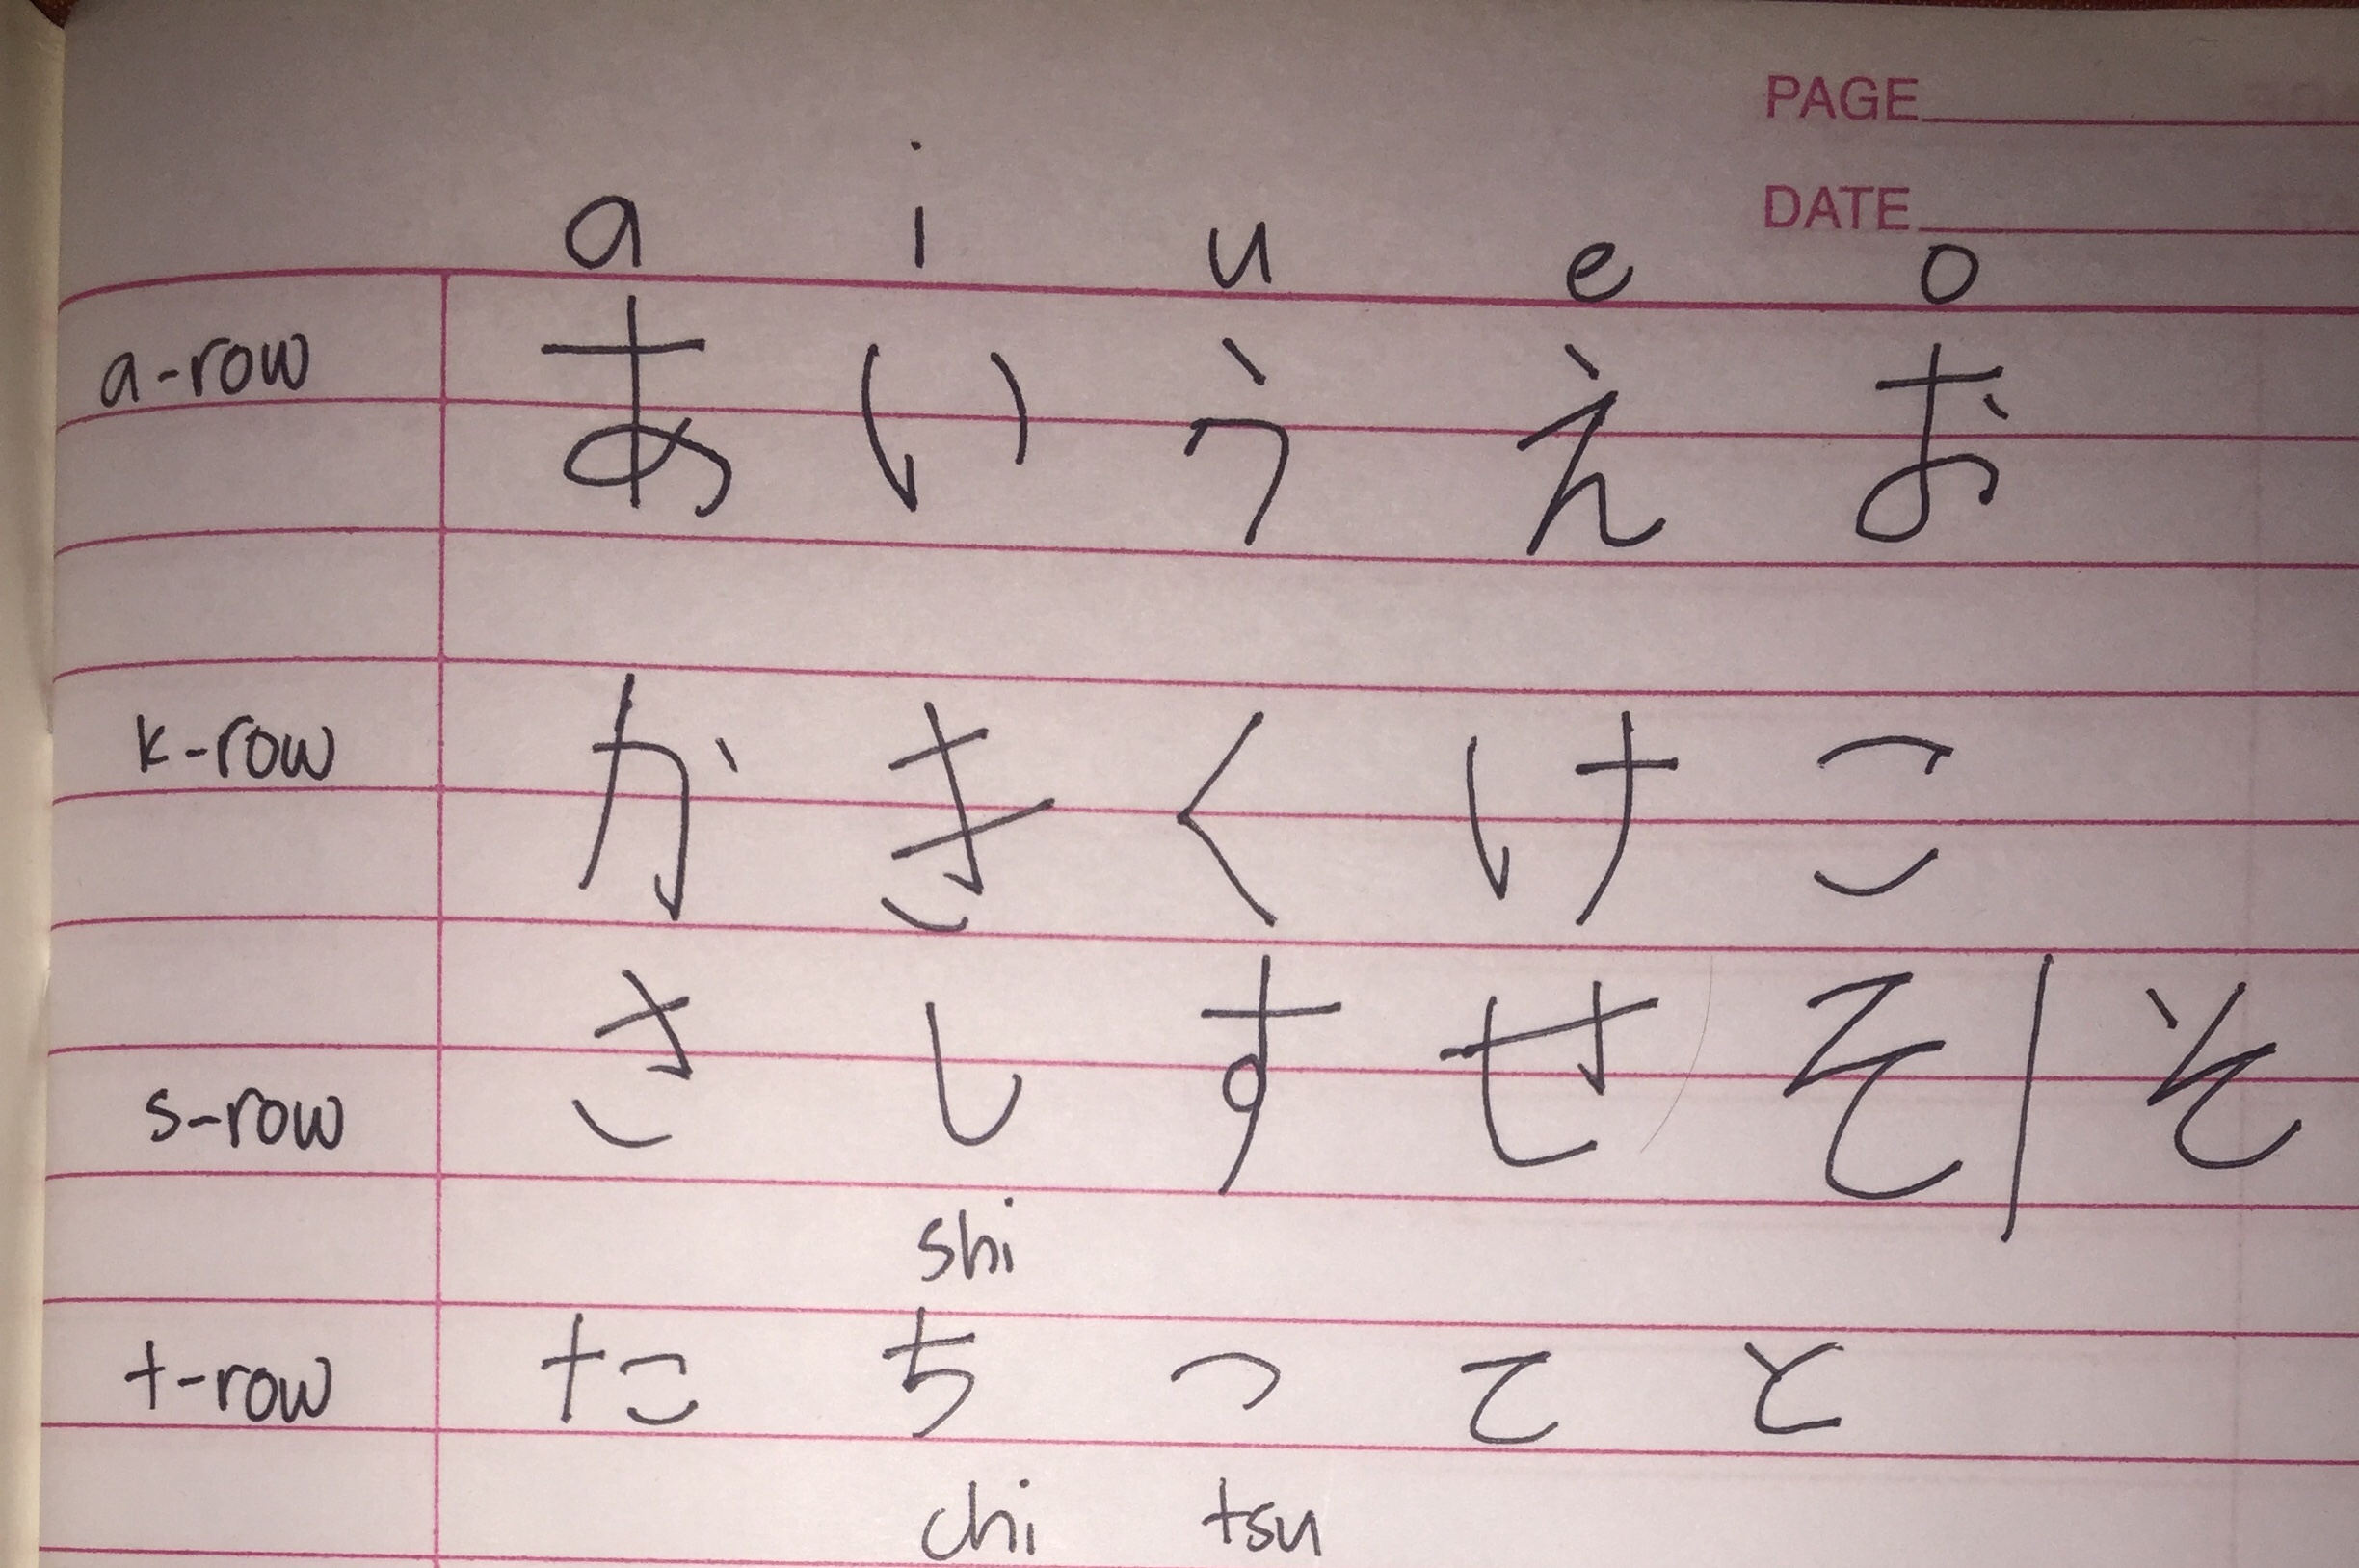 PAGE
DATE
a i u e o
a-row あ い う え お
k-row か き く け こ
s-row さ し す せ そ | そ
shi
t-row た ち つ て と
chi tsu